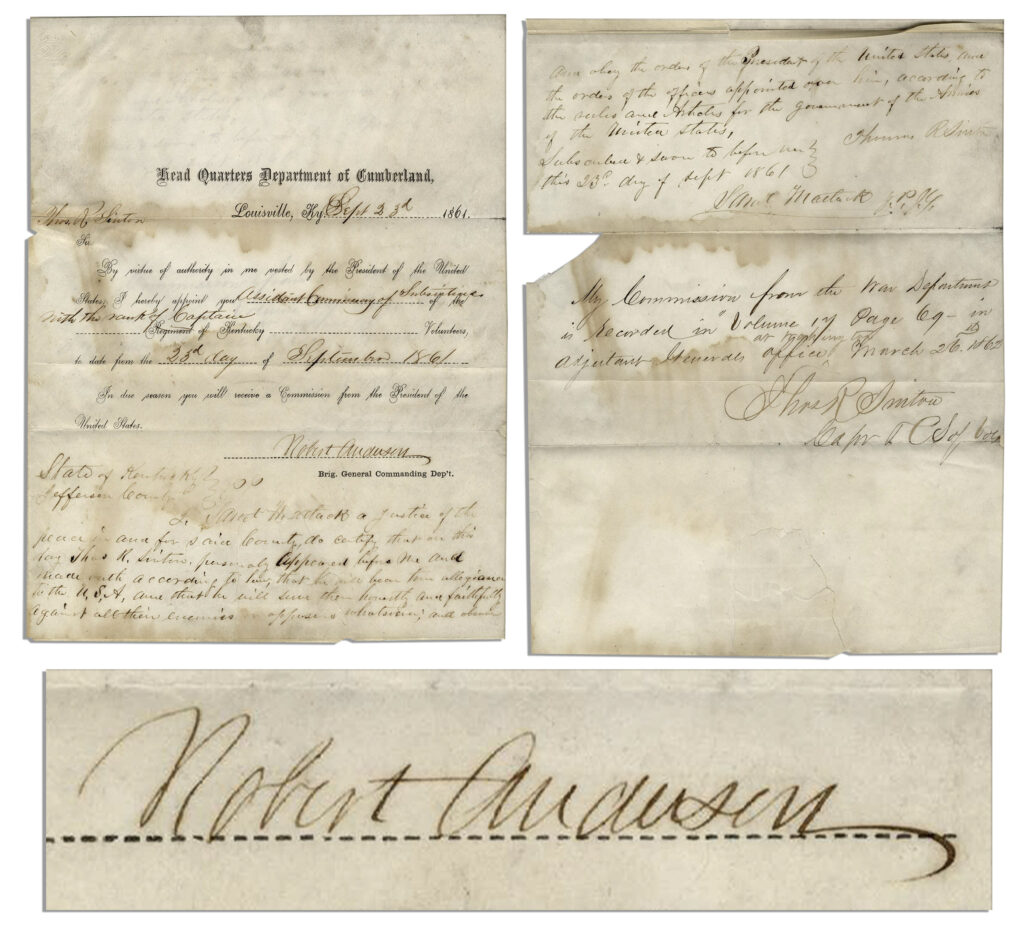 Head Quarters Department of Cumberland,
Louisville, Ky. Sept 23d 1861.
Thos. R. Sinton
Sir
By virtue of authority in me vested by the President of the United
States, I hereby appoint you Assistant Commissary of Subsistence of the
with the rank of Captain
Regiment of Kentucky Volunteers,
to date from the 23d day of September 1861
In due season you will receive a Commission from the President of the
United States.
Robert Anderson
Brig. General Commanding Dep't.
State of Kentucky
Jefferson County
I, Saml Matlack a Justice of the
peace in and for said County, do certify that on this
day Thos R. Sinton, personaly appeared before me and
made oath according to law, that he will bear true allegiance
to the U.S.A, and that he will serve them honestly and faithfully
against all their enemies or opposers whatsoever, and observe
and obey the orders of the President of the United States and
the orders of the officers appointed over him, according to
the rules and Articles for the government of the Armies
of the United States,
Thomas R. Sinton
Subscribed & sworn to before me
this 23d day of Sept 1861
Saml Matlack J.P.
My Commission from the War Department
is Recorded in Volume 17 Page 69 - in
Adjutant Generals office at March 26th 1862
Thos R Sinton
Capt & C S of Vols
Robert Anderson